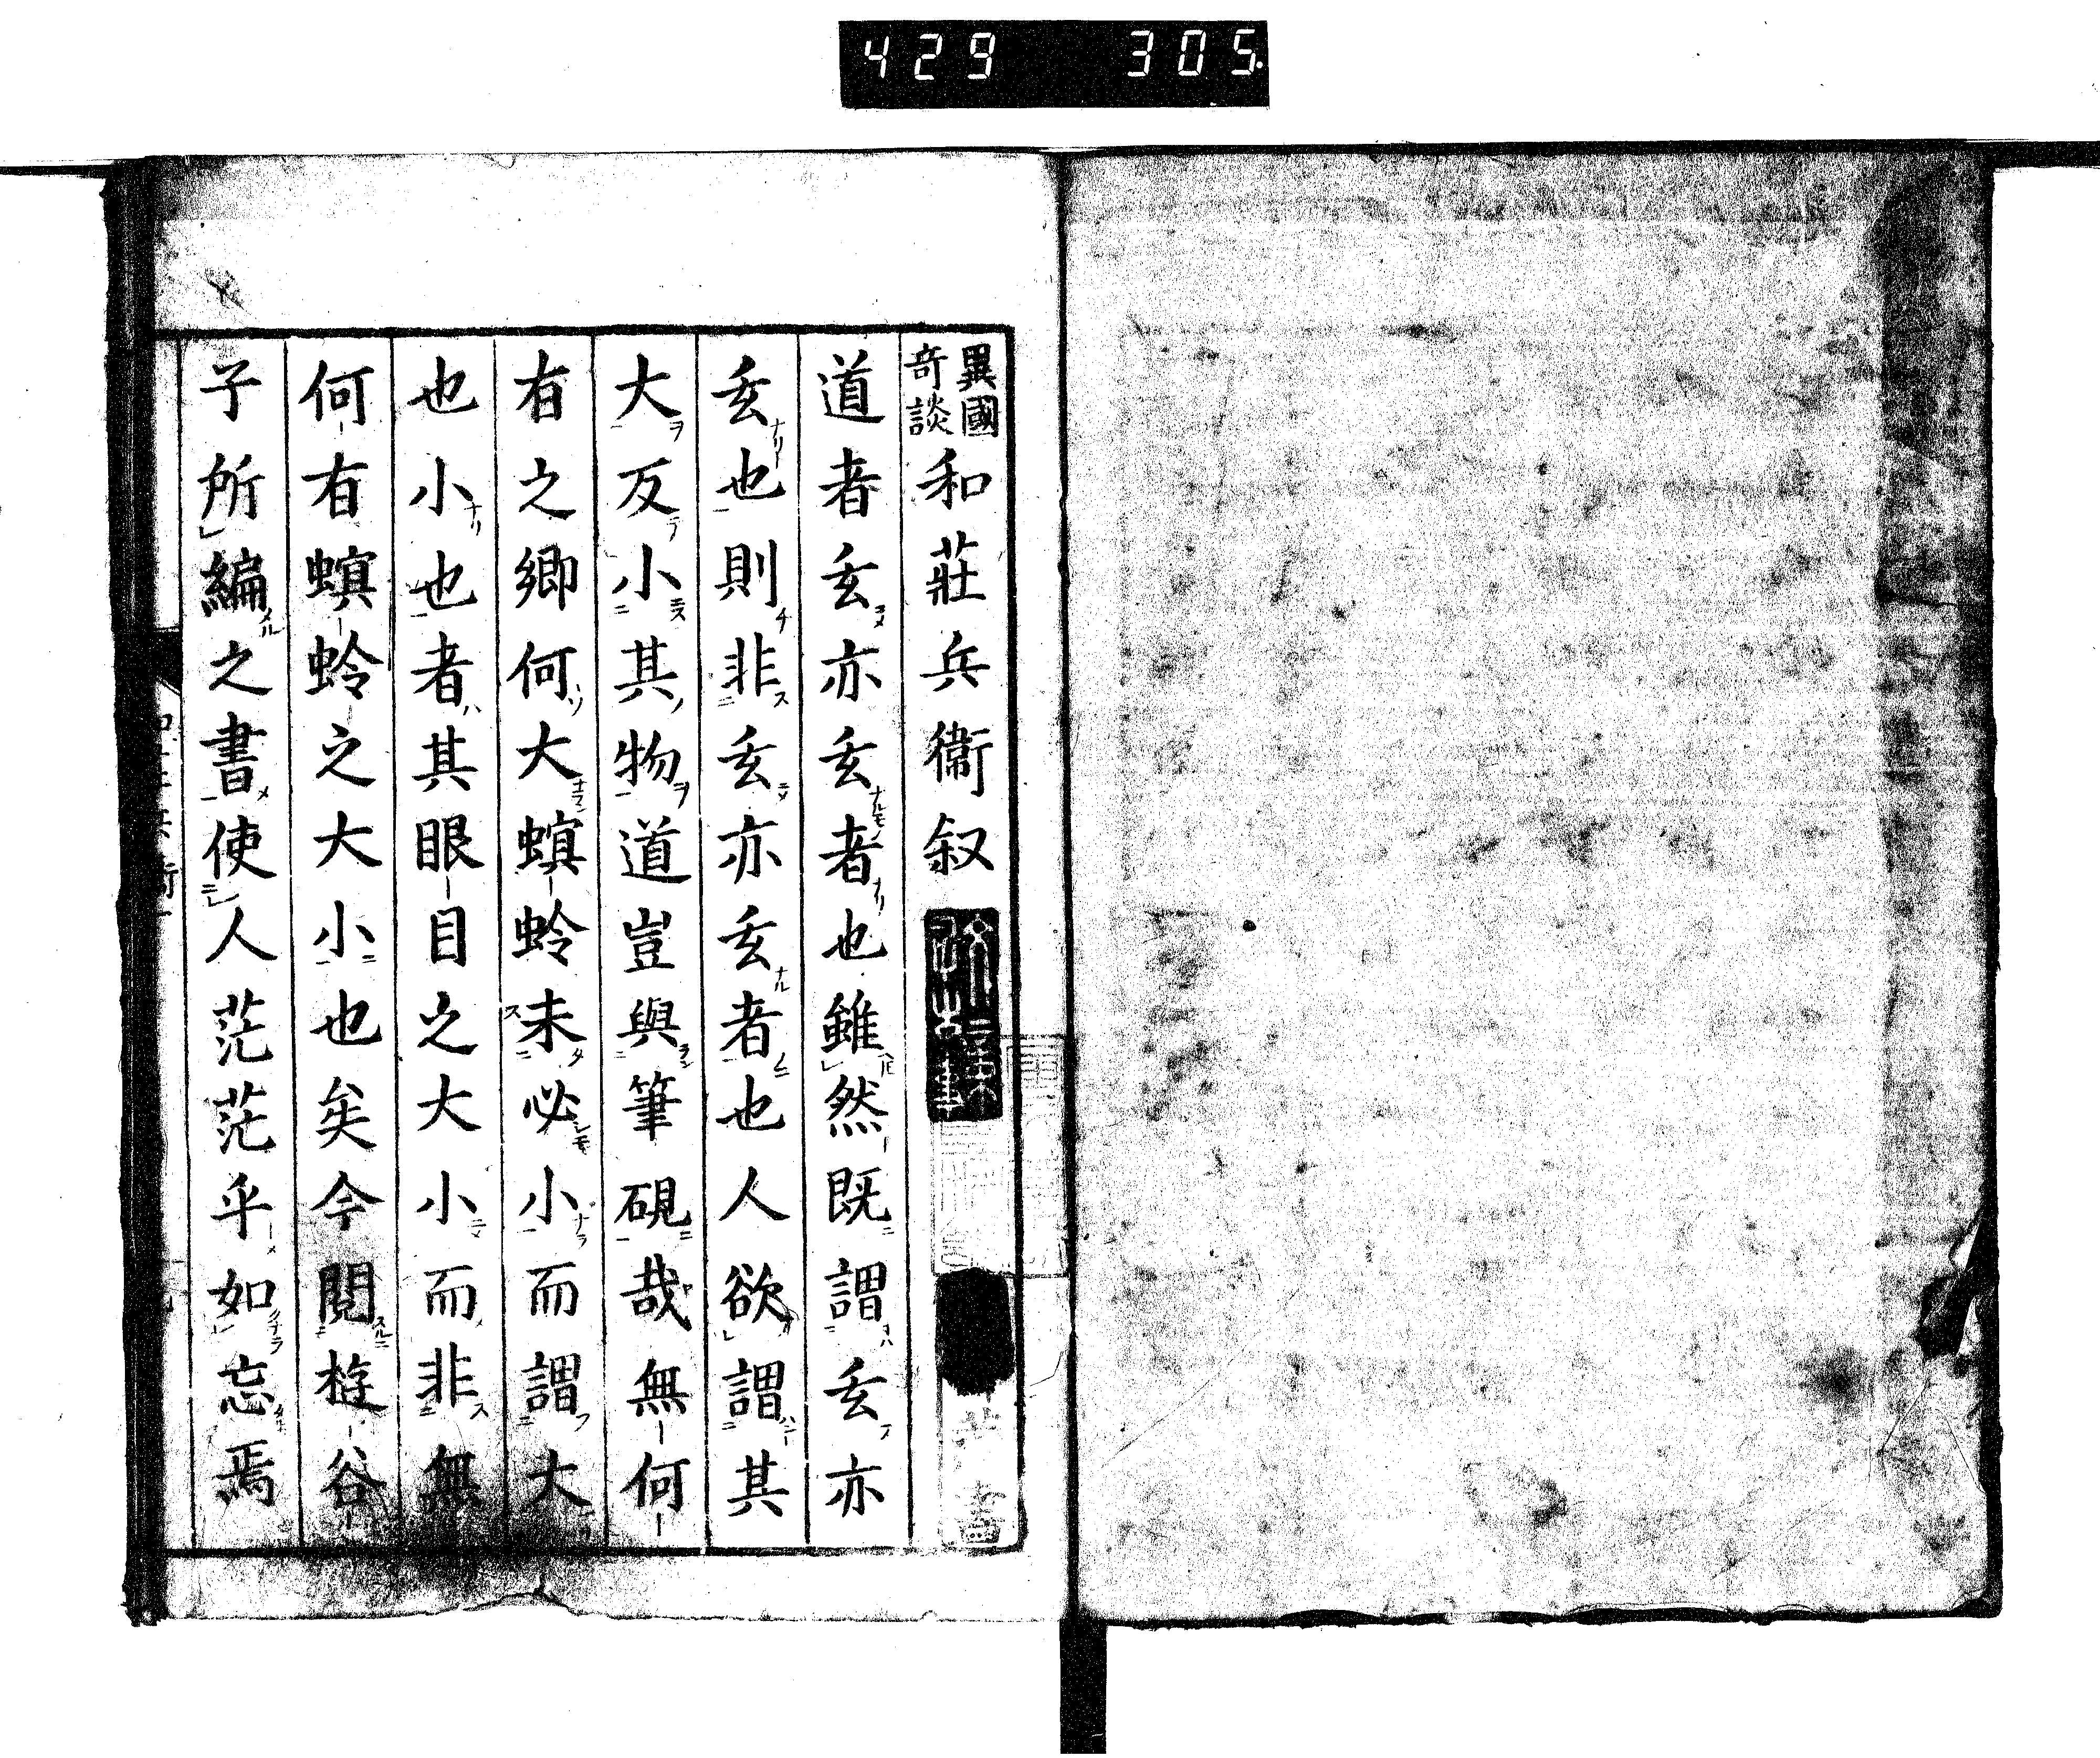 429 305
異國奇談 和莊兵衞叙
道者玄亦玄者也雖然既謂玄亦
玄也則非玄亦玄者也人欲謂其
大反小其物道豈與筆硯哉無何
有之鄉何大螟蛉未必小而謂大
也小也者其眼目之大小而非無
何有螟蛉之大小也矣今閲遊谷
子所編之書使人茫茫乎如忘焉